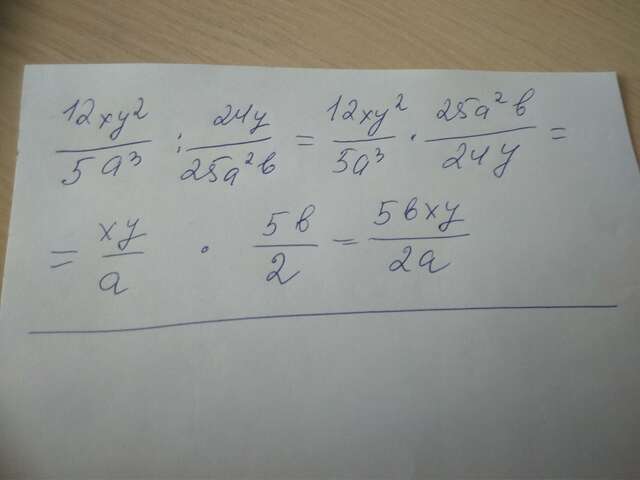 12xy²/5a³ : 24y/25a²b = 12xy²/5a³ · 25a²b/24y =
= xy/a · 5b/2 = 5bxy/2a